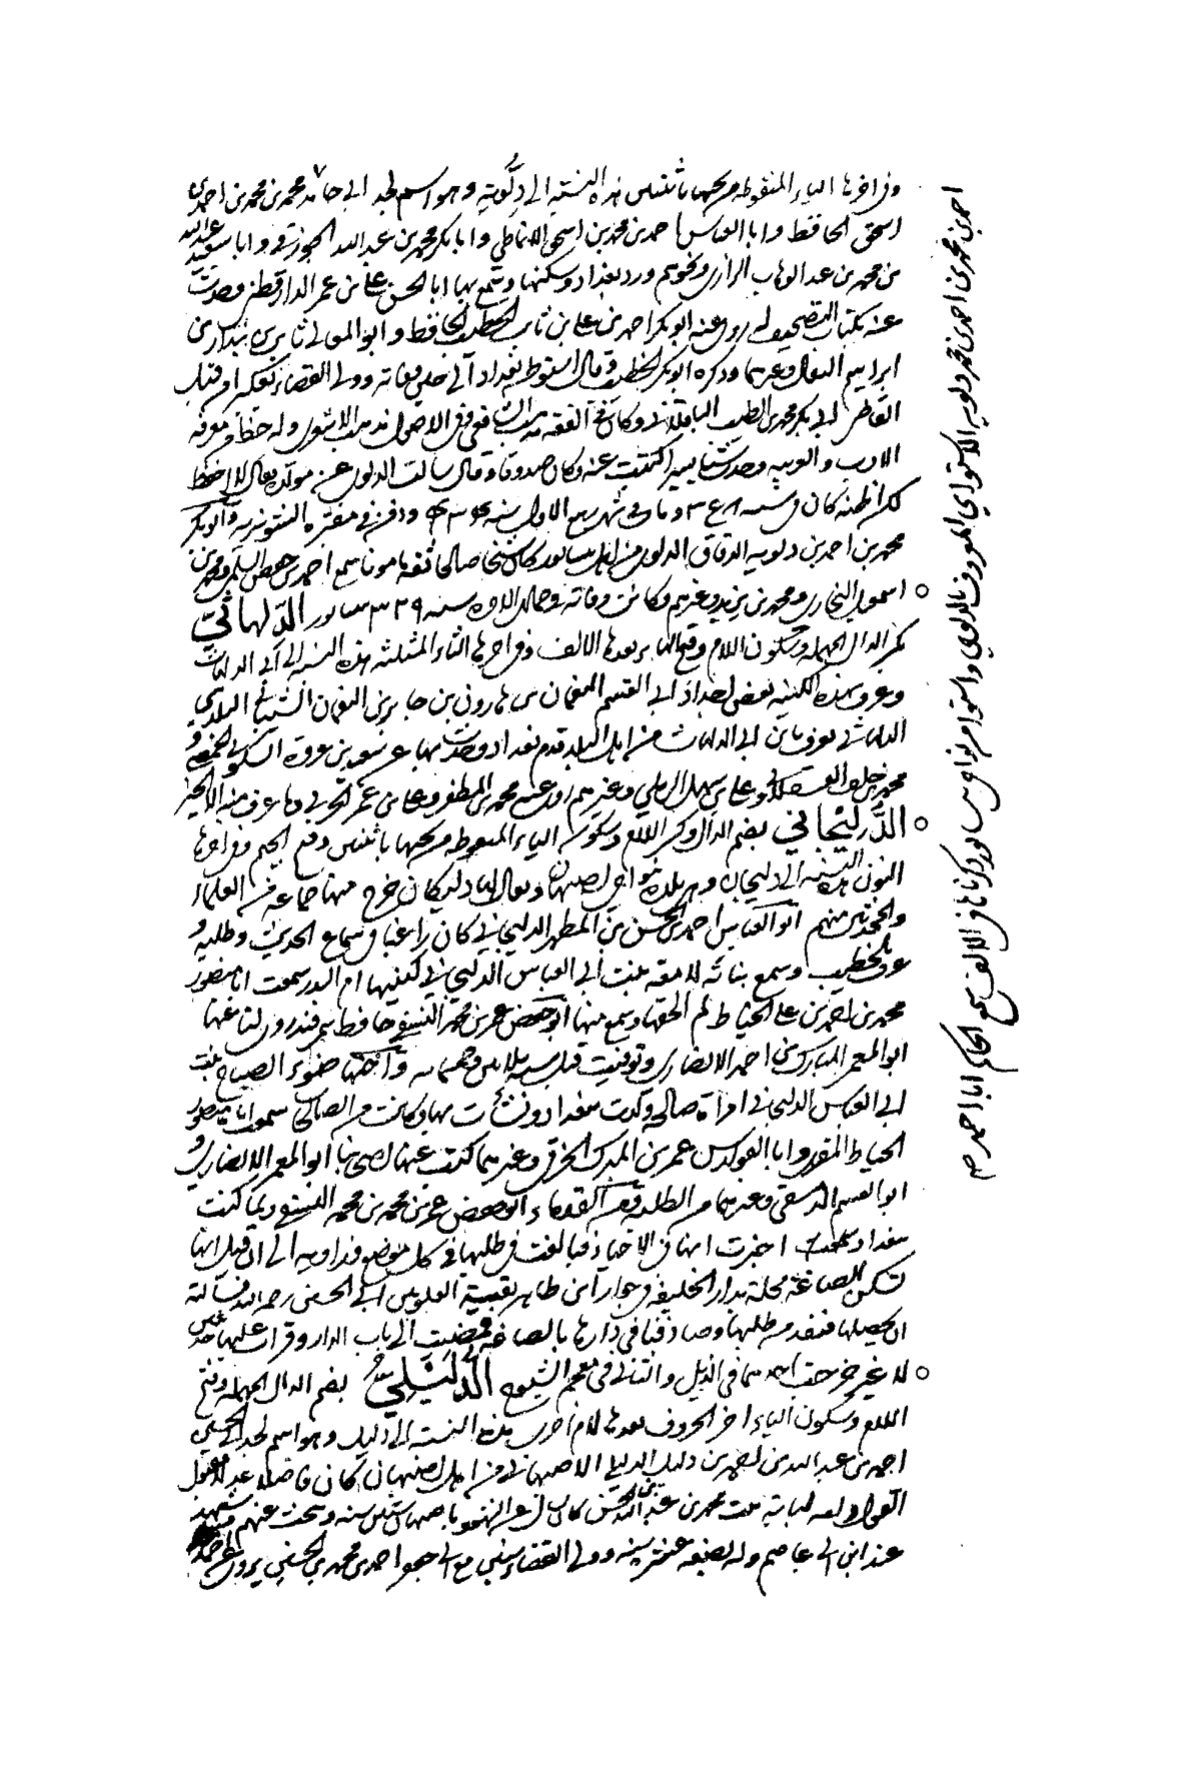 وفي اخرها الياء المنقوطة من تحتها باثنتين هذه النسبة الى دلّويه وهو اسم لجد ابي حامد محمد بن محمد بن احمد بن
اسحق الحافظ وابا العباس احمد بن محمد بن اسحق الانماطي وابا بكر محمد بن عبد الله الجوزقي وابا سعيد عبد الله
بن محمد بن عبد الوهاب الرازي ونحوهم ورد بغداد وسكنها وسمع بها ابا الحسن علي بن عمر الدارقطني وحدث
عنه بكتاب التصحيف له روى عنه ابو بكر احمد بن علي بن ثابت الخطيب الحافظ وابو المعالي ثابت بن بندار بن
ابراهيم البقال وغيرهما وذكره ابو بكر الخطيب وقال استوطن بغداد الى حين وفاته وولي القضاء بعكبرا من قبل
القاضي ابي بكر محمد بن الطيب الباقلاني وكان في الفقه مذهب الشافعي وفي الاصول مذهب الاشعري وله حظ في معرفة
الادب والعربية وحدث شيئا يسيرا كتبت عنه وكان صدوقا وقال سالت الدلوي عن مولده فقال لا احفظ
لكن اظنه كان في سنه ومات في شهر ربيع الاول سنه ودفن في مقبرة الشونيزية وابو بكر
محمد بن احمد بن دلويه الدقاق الدلوي من اهل نيسابور كان شيخا صالحا ثقة مامونا سمع احمد بن حفص السلمي ومحمد بن
اسمعيل البخاري ومحمد بن يزيد وغيرهم وكانت وفاته في جمادى الاولى سنه ٣٢٩ بنيسابور الدلهاثي
بكسر الدال المهملة وسكون اللام وفتح الهاء بعدها الالف وفي اخرها الثاء المثلثة هذه النسبة الى ابي الدلهاث
وعرف بهذه الكنية بعض اجداد ابي القسم النعمان بن هارون بن جابر بن النعمان الشيباني البلدي
الدلهاثي يعرف بابن ابي الدلهاث من اهل البلد قدم بغداد وحدث بها عن سعيد بن عمرو السكوني الحمصي و
محمد بن خلف العسقلاني وعلي بن سهل الرملي وغيرهم روى عنه محمد بن المظفر وعلي بن عمر الحربي وما عرف منه الا الخير
الدُّليجاني بضم الدال وكسر اللام وسكون الياء المنقوطة من تحتها باثنتين وفتح الجيم وفي اخرها
النون هذه النسبة الى دليجان وهي بلدة بنواحي اصبهان ويقال لها دليكان خرج منها جماعة من العلماء
والمحدثين منهم ابو العباس احمد بن الحسن بن المطهر الدليجاني كان راغبا في سماع الحديث وطلبه و
عرف بالخطيب وسمع بناته لامعة بنت ابي العباس الدليجاني كنيتها ام البدر سمعت ابا منصور
محمد بن احمد بن علي الخياط لم الحقها وسمع منها ابو حفص عمر بن محمد النسفي حافظ سمرقند روى لنا عنها
ابو المعمر المبارك بن احمد الانصاري وتوفيت قبل سنة ثلاثين وخمسمائة واختها ضوء الصباح بنت
ابي العباس الدليجاني امراة صالحة ولدت ببغداد ونشات بها وكانت من الصالحات سمعت ابا منصور
الخياط المقرئ وابا الفوارس عمر بن المبارك الخرقي وغيرهما كتب عنها اصحابنا ابو المعمر الانصاري و
ابو القسم الدمشقي وغيرهما من الطلبة ومن القدماء ابو حفص عمر بن محمد بن محمد النسفي ولما كنت
ببغداد اخبرت انها في الاحياء فبالغت في طلبها في كل موضع وزاوية الى ان قيل انها
تسكن الصاغة محلة بدار الخليفة في جوار ابن طاهر نقيب العلويين ابي الحسن رحمه الله فسالته
ان يحصلها فنفذ من طلبها وصادفنا في دارها بالصاغة فمضيت الى باب الدار وقرات عليها حديثين
لا غير خرجت احدهما في الذيل والثاني في معجم الشيوخ الدُّلَيْلي بضم الدال المهملة وفتح
اللام وسكون الياء اخر الحروف بعدها لام اخرى هذه النسبة الى دليل وهو اسم لجد ابي الحسين
احمد بن عبد الله بن احمد بن دليل الدليلي الاصبهاني من اهل اصبهان كان فاضلا
محمد بن عبد الله بن الحسن كان باصبهان ستين سنة وبحث عنهم
عند ابن ابي عاصم وله بضع عشرة سنه وولي القضاء احمد بن محمد بن الحسين يروي عن احمد
احمد بن محمد بن احمد بن محمد دلويه الاستوائي المعروف بالدلوي واستوا من نواحي نيسابور ذكرناها في الالف سمع الحاكم ابا احمد محمد